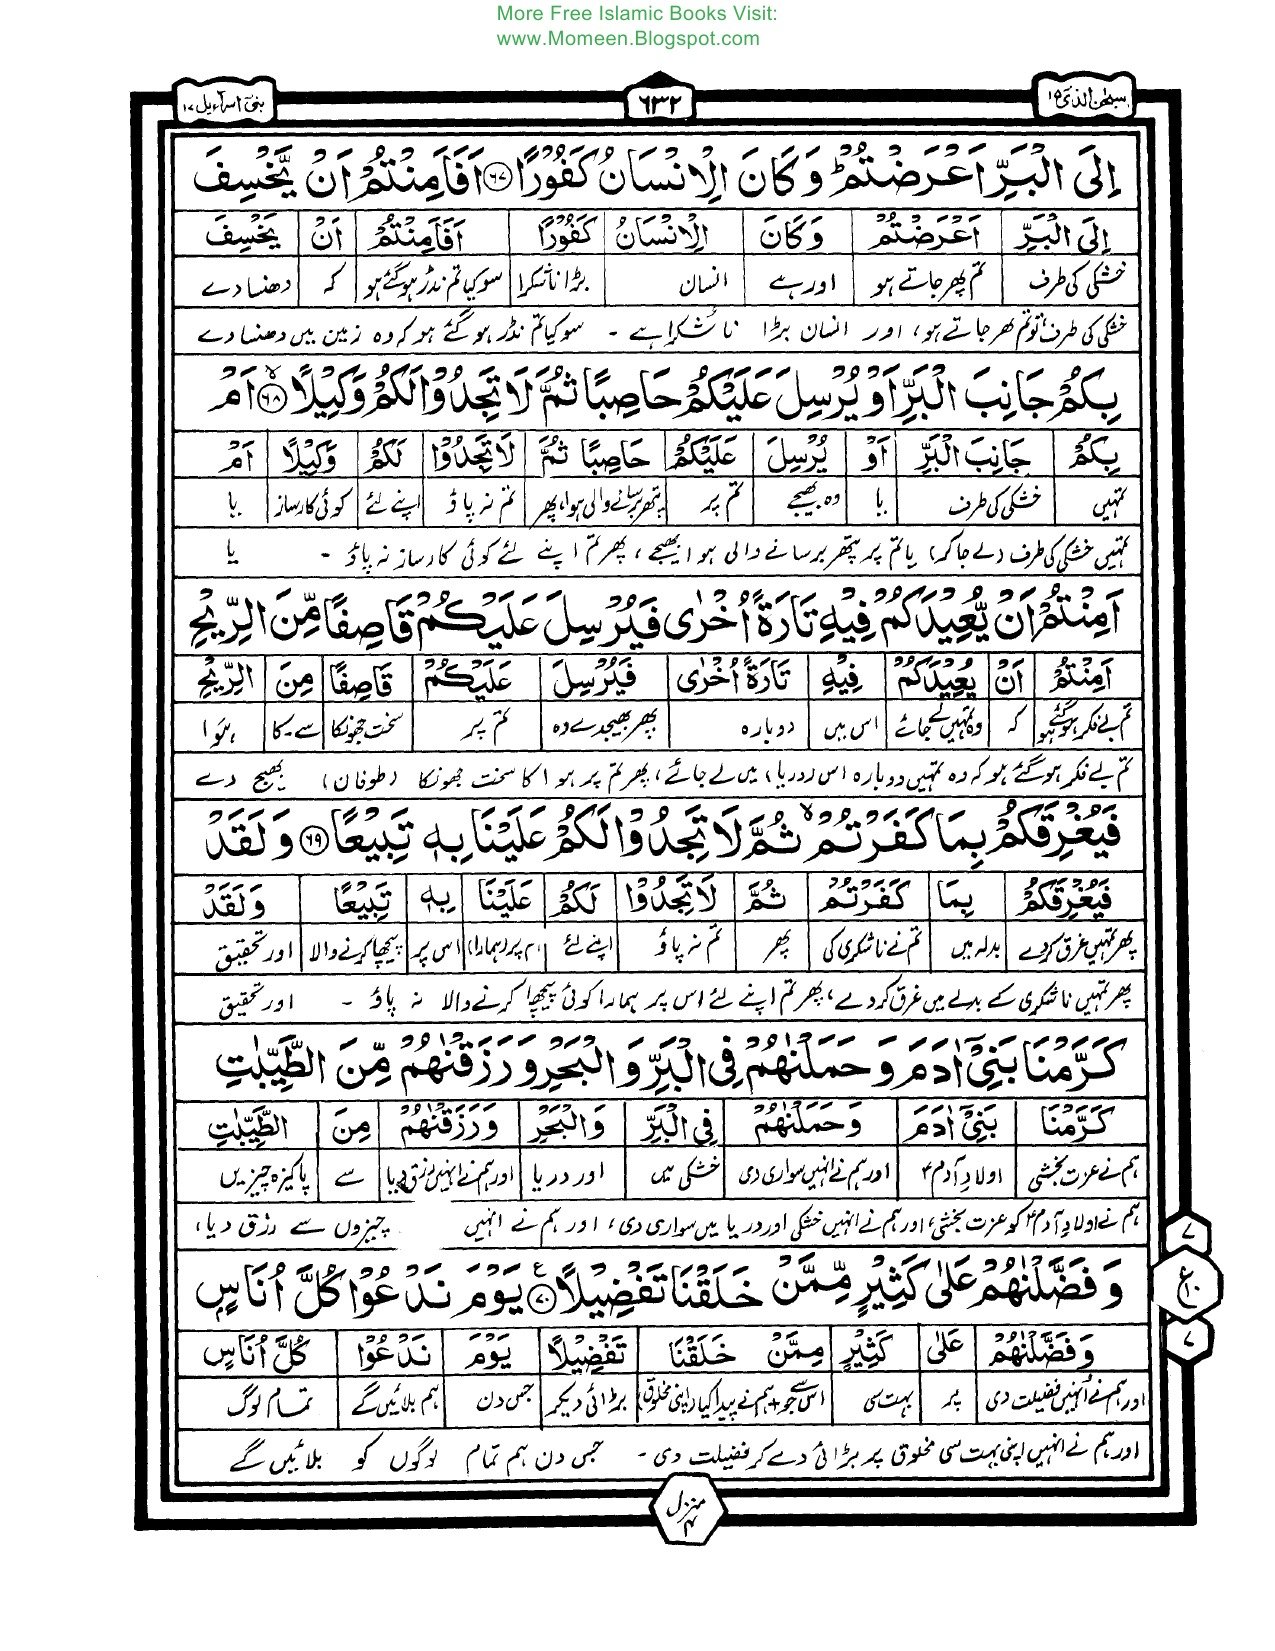 More Free Islamic Books Visit:
www.Momeen.Blogspot.com
سبحٰن الذی ۱۵
۶۳۲
بنیٓ اسرآءیل ۱۷
اِلَى الْبَرِّ اَعْرَضْتُمْ ؕ وَ كَانَ الْاِنْسَانُ كَفُوْرًا ﴿۶۷﴾ اَفَاَمِنْتُمْ اَنْ يَّخْسِفَ
اِلَى الْبَرِّ اَعْرَضْتُمْ وَ كَانَ الْاِنْسَانُ كَفُوْرًا اَفَاَمِنْتُمْ اَنْ يَّخْسِفَ
خشکی کی طرف تم پھر جاتے ہو اور ہے انسان بڑا ناشکرا سو کیا تم نڈر ہو گئے ہو کہ دھنسا دے
خشکی کی طرف تو تم پھر جاتے ہو، اور انسان بڑا ناشکرا ہے ۔ سو کیا تم نڈر ہو گئے ہو کہ وہ زمین میں دھنسا دے
بِكُمْ جَانِبَ الْبَرِّ اَوْ يُرْسِلَ عَلَيْكُمْ حَاصِبًا ثُمَّ لَا تَجِدُوْا لَكُمْ وَكِيْلًا ﴿۶۸﴾ اَمْ
بِكُمْ جَانِبَ الْبَرِّ اَوْ يُرْسِلَ عَلَيْكُمْ حَاصِبًا ثُمَّ لَا تَجِدُوْا لَكُمْ وَكِيْلًا اَمْ
تمہیں خشکی کی طرف یا وہ بھیجے تم پر پتھر برسانے والی ہوا، پھر تم نہ پاؤ اپنے لئے کوئی کارساز یا
تمہیں خشکی کی طرف (لے جا کر) یا تم پر پتھر برسانے والی ہوا بھیجے، پھر تم اپنے لئے کوئی کارساز نہ پاؤ ۔ یا
اَمِنْتُمْ اَنْ يُّعِيْدَكُمْ فِيْهِ تَارَةً اُخْرٰى فَيُرْسِلَ عَلَيْكُمْ قَاصِفًا مِّنَ الرِّيْحِ
اَمِنْتُمْ اَنْ يُعِيْدَكُمْ فِيْهِ تَارَةً اُخْرٰى فَيُرْسِلَ عَلَيْكُمْ قَاصِفًا مِنَ الرِّيْحِ
تم بے فکر ہو گئے ہو کہ وہ تمہیں لے جائے اس میں دوبارہ پھر بھیجدے وہ تم پر سخت جھونکا سے ۔ کا ہوا
تم بے فکر ہو گئے ہو کہ وہ تمہیں دوبارہ اس (دریا) میں لے جائے، پھر تم پر ہوا کا سخت جھونکا (طوفان) بھیج دے
فَيُغْرِقَكُمْ بِمَا كَفَرْتُمْ ۙ ثُمَّ لَا تَجِدُوْا لَكُمْ عَلَيْنَا بِهٖ تَبِيْعًا ﴿۶۹﴾ وَ لَقَدْ
فَيُغْرِقَكُمْ بِمَا كَفَرْتُمْ ثُمَّ لَا تَجِدُوْا لَكُمْ عَلَيْنَا بِهٖ تَبِيْعًا وَ لَقَدْ
پھر تمہیں غرق کر دے بدلہ میں تم نے ناشکری کی پھر تم نہ پاؤ اپنے لئے ہم پر (ہمارا) اس پر پیچھا کرنے والا اور تحقیق
پھر تمہیں ناشکری کے بدلے میں غرق کر دے، پھر تم اپنے لئے اس پر ہمارا کوئی پیچھا کرنے والا نہ پاؤ ۔ اور تحقیق
كَرَّمْنَا بَنِيْٓ اٰدَمَ وَ حَمَلْنٰهُمْ فِى الْبَرِّ وَ الْبَحْرِ وَ رَزَقْنٰهُمْ مِّنَ الطَّيِّبٰتِ
كَرَّمْنَا بَنِيْٓ اٰدَمَ وَ حَمَلْنٰهُمْ فِى الْبَرِّ وَالْبَحْرِ وَ رَزَقْنٰهُمْ مِنَ الطَّيِّبٰتِ
ہم نے عزت بخشی اولادِ آدمؑ اور ہم نے انہیں سواری دی خشکی میں اور دریا اور ہم نے انہیں رزق دیا سے پاکیزہ چیزیں
ہم نے اولادِ آدمؑ کو عزت بخشی، اور ہم نے انہیں خشکی اور دریا میں سواری دی، اور ہم نے انہیں چیزوں سے رزق دیا،
وَ فَضَّلْنٰهُمْ عَلٰى كَثِيْرٍ مِّمَّنْ خَلَقْنَا تَفْضِيْلًا ﴿۷۰﴾ ع يَوْمَ نَدْعُوْا كُلَّ اُنَاسٍ
وَ فَضَّلْنٰهُمْ عَلٰى كَثِيْرٍ مِمَّنْ خَلَقْنَا تَفْضِيْلًا يَوْمَ نَدْعُوْا كُلَّ اُنَاسٍ
اور ہم نے انہیں فضیلت دی پر بہت سی اس سے جو + ہم نے پیدا کیا (اپنی مخلوق) بڑائی دیکر جس دن ہم بلائیں گے تمام لوگ
اور ہم نے انہیں اپنی بہت سی مخلوق پر بڑائی دے کر فضیلت دی ۔ جس دن ہم تمام لوگوں کو بلائیں گے
۷
ع ۱۰
۷
منزل ۴